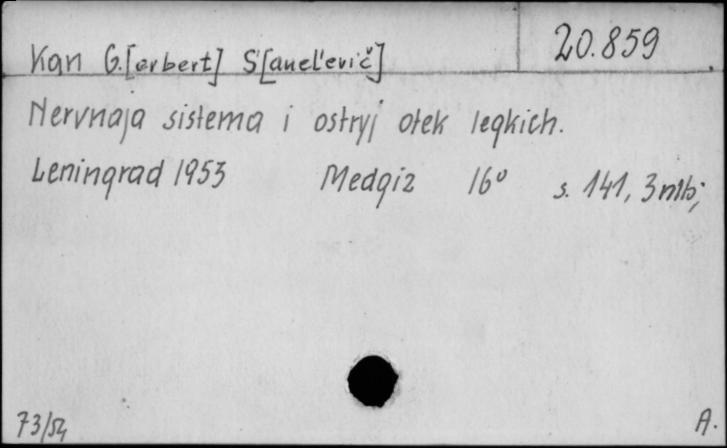 20.859
Kan G.[erbert] S.[auel'evič]
Nervnaja sistema i ostryj otek legkich.
Leningrad 1953 Medgiz 16° s. 141, 3 nlb;
73/54 A.